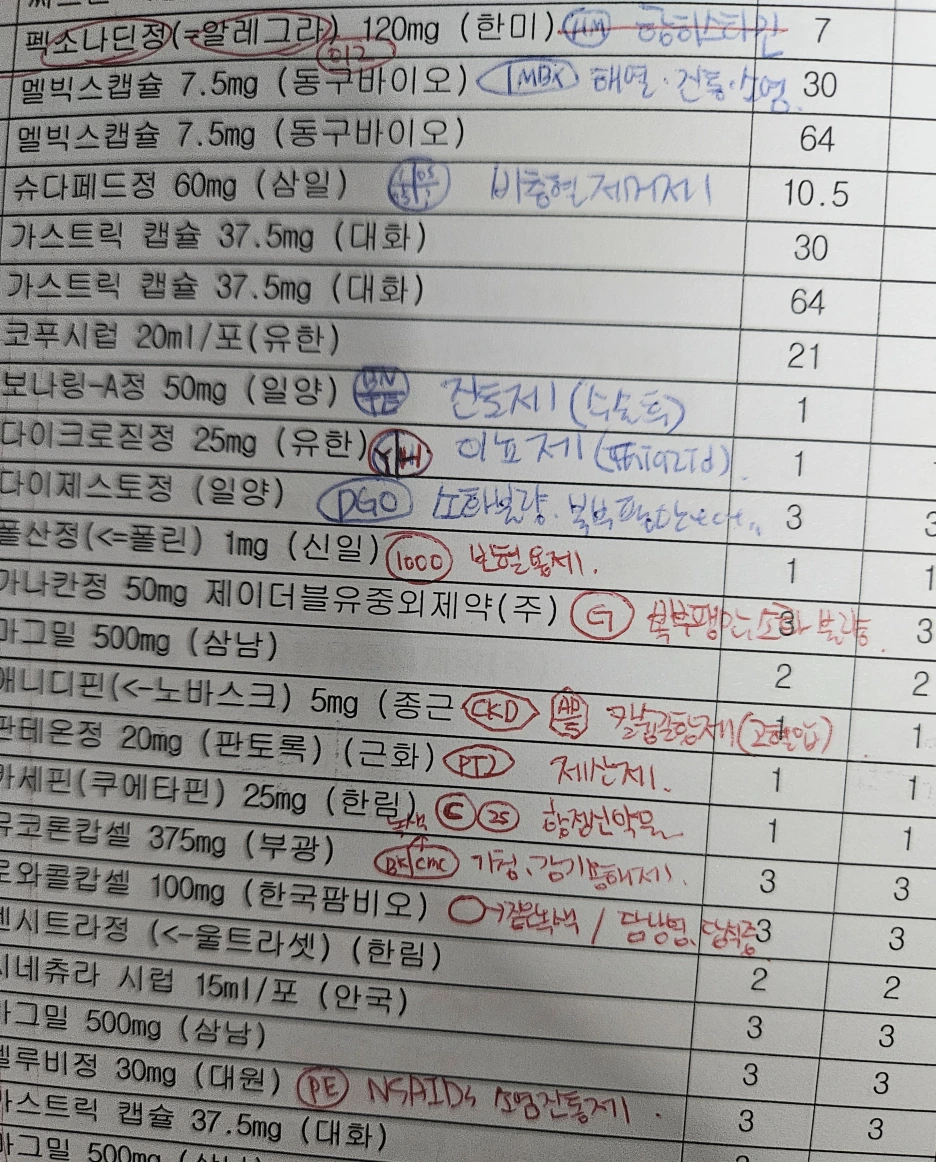 펙소나딘정(=알레그라) 120mg (한미) HM 항히스타민 7
멜빅스캡슐 7.5mg (동구바이오) MBX 해열·진통·소염 30
멜빅스캡슐 7.5mg (동구바이오) 64
슈다페드정 60mg (삼일) 비충혈제거제 10.5
가스트릭 캡슐 37.5mg (대화) 30
가스트릭 캡슐 37.5mg (대화) 64
코푸시럽 20ml/포(유한) 21
보나링-A정 50mg (일양) 진토제 1
다이크로짇정 25mg (유한) YH 이뇨제 1
다이제스토정 (일양) DGO 소화불량. 복부팽만 3 3
폴산정(<=폴린) 1mg (신일) 1000 보혈용제. 1 1
가나칸정 50mg 제이더블유중외제약(주) G 복부팽만, 소화불량. 3 3
마그밀 500mg (삼남) 2 2
애니디핀(<-노바스크) 5mg (종근 CKD 칼슘길항제(고혈압) 1 1
판테온정 20mg (판토록) (근화) PT2 제산제. 1 1
카세핀(쿠에타핀) 25mg (한림) C 25 항정신약물 1 1
뮤코론캅셀 375mg (부광) BK CMC 기침, 감기용해제. 3 3
로와콜캅셀 100mg (한국팜비오) →짙은녹색 / 담낭염, 담석증 3 3
덴시트라정 (<-울트라셋) (한림) 2 2
시네츄라 시럽 15ml/포 (안국) 3 3
마그밀 500mg (삼남) 3 3
펠루비정 30mg (대원) PE NSAIDs 소염진통제. 3 3
가스트릭 캡슐 37.5mg (대화)
마그밀 500mg